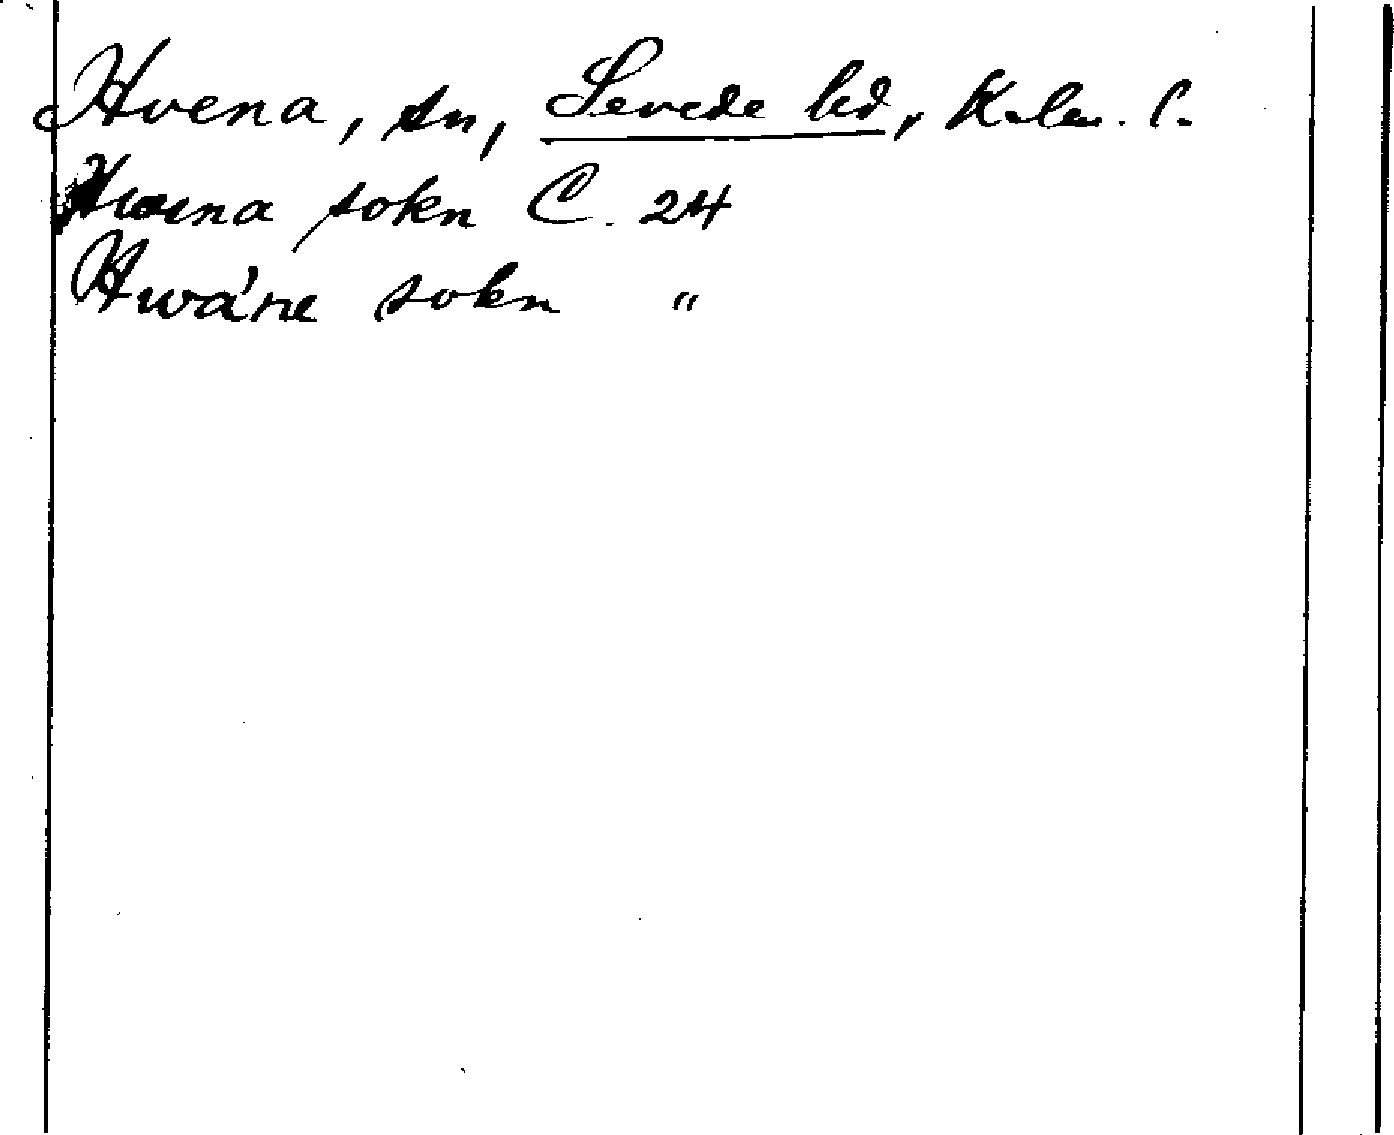 Hvena, sn, Sevede hd, Kalm. l.
Hwena sokn C. 24
Hwáne sokn "